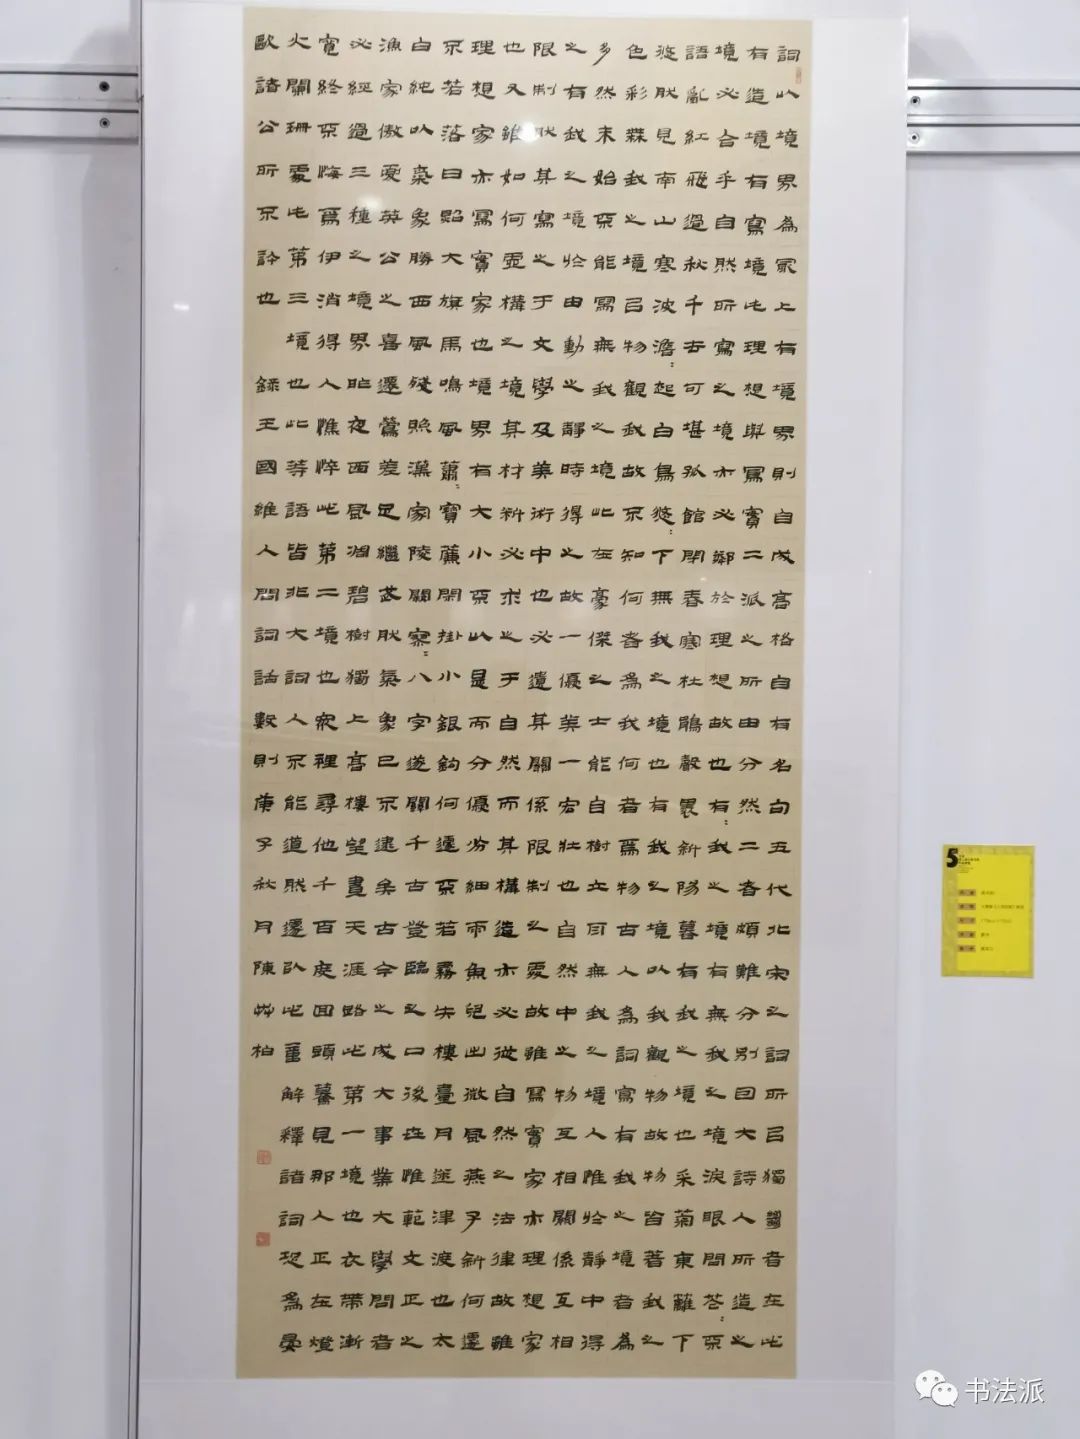 詞以境界為冣上有境界則自成高格自有名句五代北宋之詞所㠯獨者在此
有造境有寫境此理想與寫實二派之所由分然二者頗難分別因大詩人所造之
境必合乎自然所寫之境亦必鄰於理想故也有我之境有無我之境淚眼問不
語亂紅飛過秋千去可堪孤館閉春寒杜鵑聲裏斜陽暮有我之境也采菊東籬下
悠然見南山寒波澹〻起白鳥悠〻下無我之境也有我之境以我觀物故物皆著我之
色彩無我之境㠯物觀我故不知何者為我何者為物古人為詞寫有我之境者為
多然未始不能寫無我之境此在豪傑之士能自樹立耳無我之境人惟於靜中得
之有我之境於由動之靜時得之故一優美一宏壯也自然中之物互相關係互相
限制然其寫之于文學及美術中也必遺其關係限制之處故雖寫實家亦理想家
也又雖如何虛構之境其材料必求之于自然而其構造亦必從自然之法律故雖
理想家亦寫實家也境界有大小不以是而分優劣細雨魚兒出微風燕子斜何遽
不若落日照大旗馬鳴風蕭〻寶簾閑掛小銀鉤何遽不若霧失樓臺月迷津渡也太
白純以氣象勝西風殘照漢家陵關寥〻八字遂關千古登臨之口後世惟範文正之
漁家傲夏英公之喜遷鶯差足繼武然氣象已不逮矣古今之成大事業大學問者
必經過三種之境界昨夜西風凋碧樹獨上高樓望盡天涯路此第一境也衣帶漸
寬終不悔為伊消得人憔悴此第二境也衆裡尋他千百度回頭驀見那人正在燈
火闌珊處此第三境也此等語皆非大詞人不能道然遽以此意解釋諸詞恐為晏
歐諸公所不許也 錄王國維人間詞話數則庚子秋月陳艸柏
5
书法派